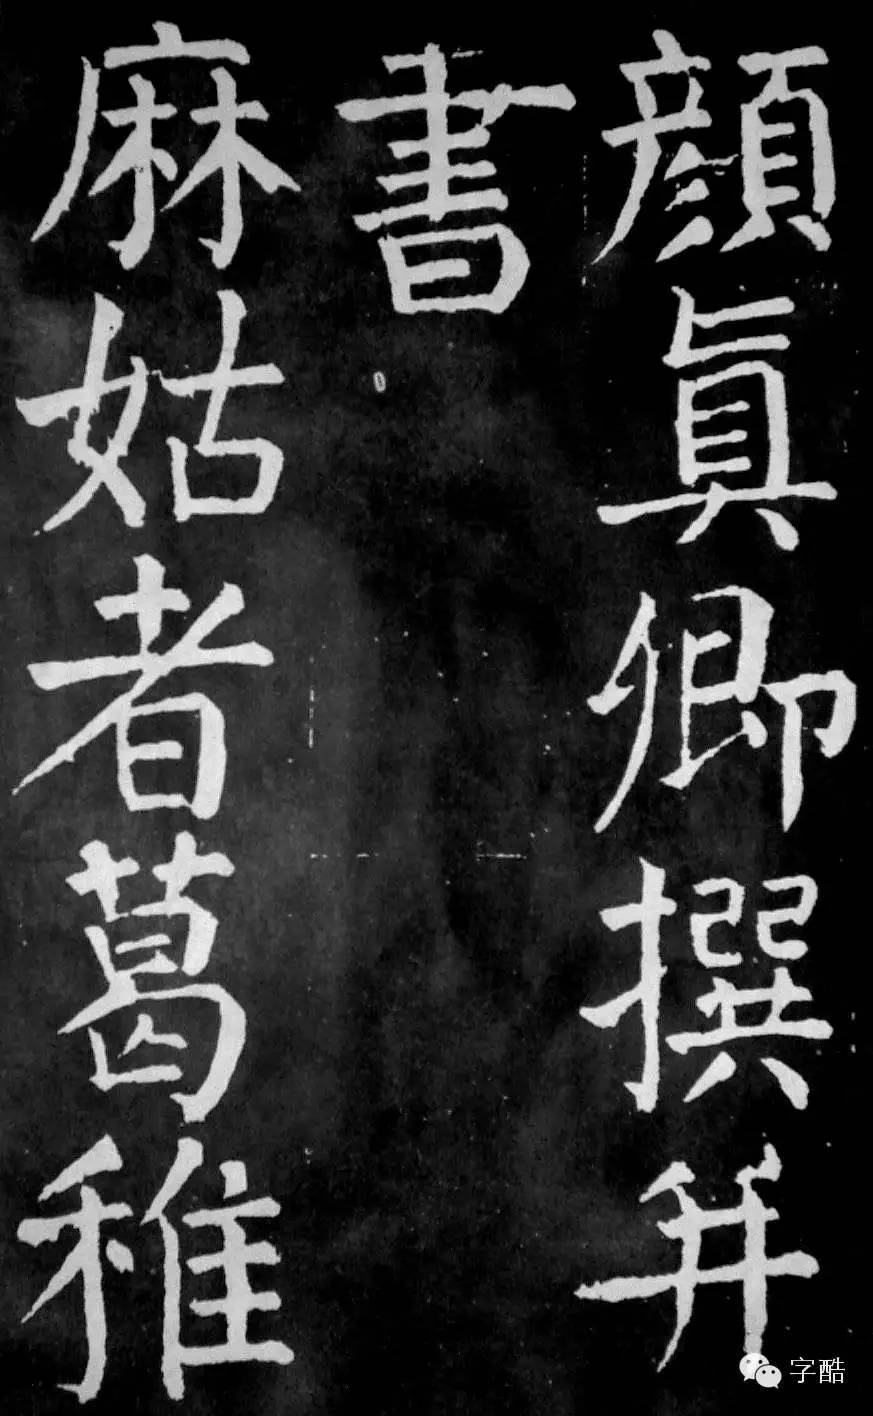 顔真卿撰并
書
麻姑者葛稚
字酷